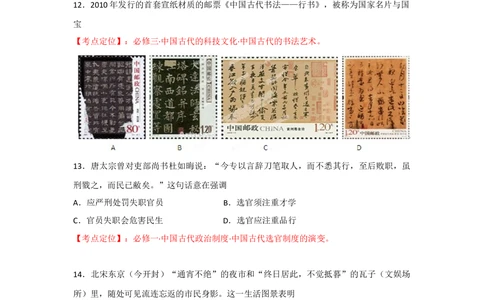 12．2010 年发行的首套宣纸材质的邮票《中国古代书法——行书》，被称为国家名片与国
宝
【考点定位】：必修三·中国古代的科技文化·中国古代的书法艺术。
中国邮政
80分
1.20
中国邮政 CHINA
1.20元
1.20
中国邮政
A
B
C
D
13．唐太宗曾对吏部尚书杜如晦说：“今专以言辞刀笔取人，而不悉其行，至后败职，虽
刑戮之，而民已敝矣。”这句话意在强调
A．应严刑处罚失职官员
B．选官须注重才学
C．官员失职会危害民生
D．选官应注重品行
【考点定位】：必修一·中国古代政治制度·中国古代选官制度的演变。
14．北宋东京（今开封）“通宵不绝”的夜市和“终日居此，不觉抵暮”的瓦子（文娱场
所）里，随处可见流连忘返的市民身影。这一生活图景表明